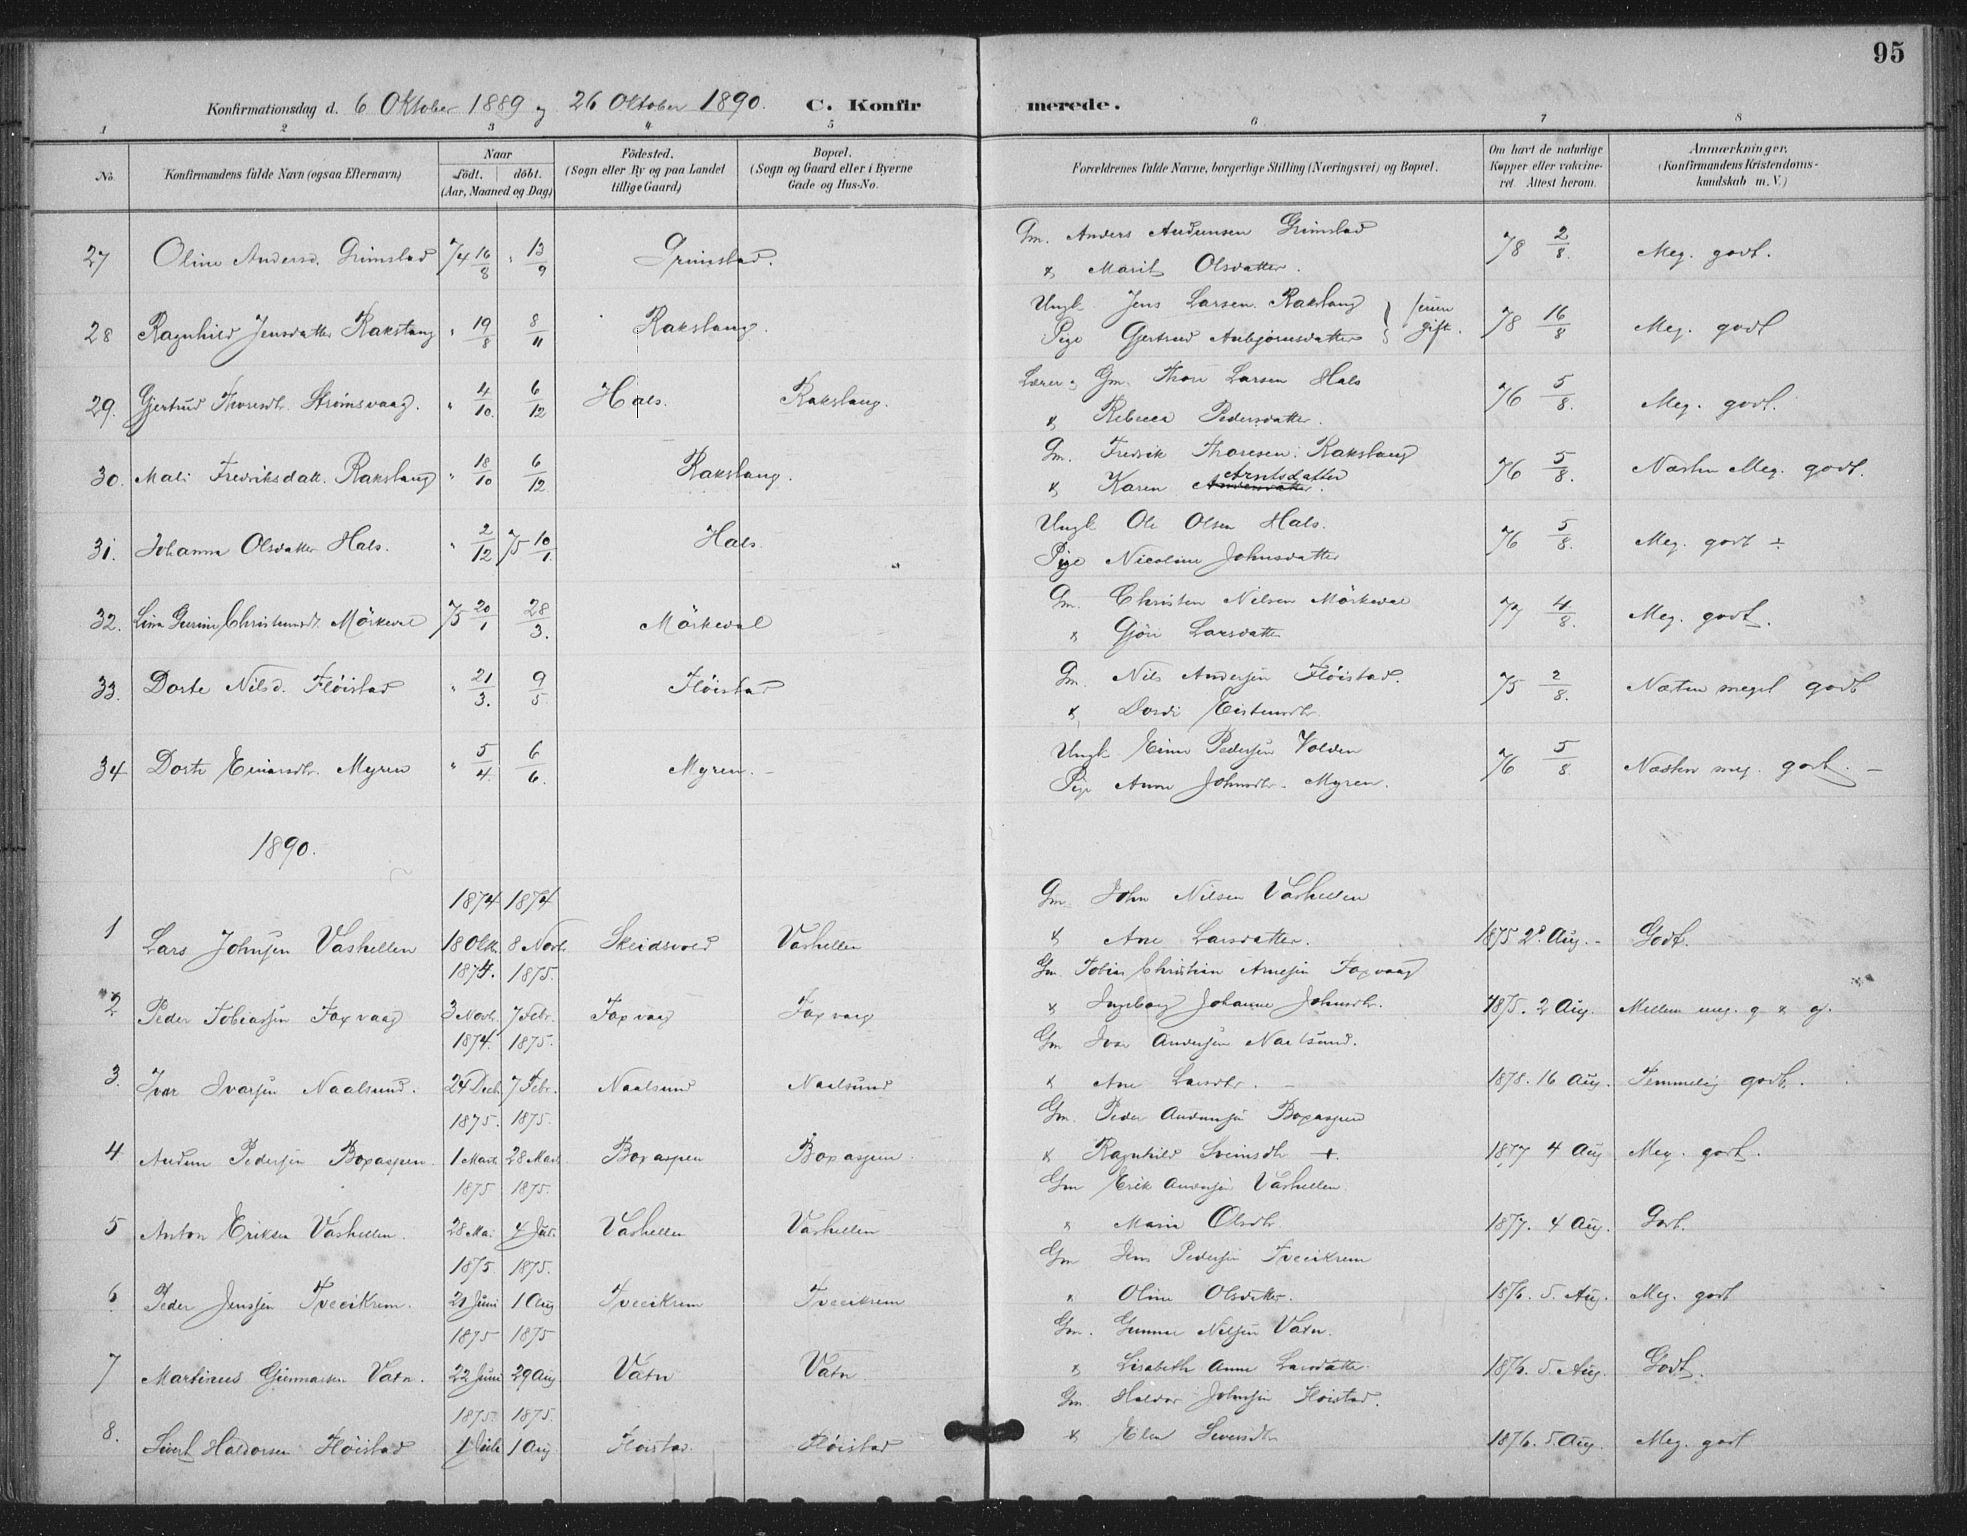 95
Konfirmationsdag d. 6 Oktober 1889 og 26 Oktober 1890. C. Konfirmerede.
1 2 3 4 5 6 7 8
No. Konfirmandens fulde Navn (ogsaa Efternavn) Naar födt. döbt. (Aar, Maaned og Dag) Födested. (Sogn eller By og paa Landet tillige Gaard) Bopæl. (Sogn og Gaard eller i Byerne Gade og Hus-No. Forældrenes fulde Navne, borgerlige Stilling (Næringsvei) og Bopæl. Om havt de naturlige Kopper eller vaccineret. Attest herom. Anmærkninger. (Konfirmandens Kristendomskundskab m. V.)
Gm. Anders Audunsen Grimstad
27 Oline Andersd. Grimstad 74 16/8 " 13/9 Grimstad. & Marit Olsdatter. 78 2/8. Meg. godt.
Ungk. Jens Larsen Rakstang
28 Ragnhild Jensdatter Rakstang " 19/8 8/11 Rakstang. Pige Gjertrud Anbjørnsdatter gift. 78 16/8 Meg. godt
Lærer & Gm. Thore Larsen Hals
29. Gjertrud Thoresdtr. Strömsvaag. " 4/10. 6/12 Hals. Rakstang. & Rebecca Pedersdatter. 76 5/8. Meg. godt.
Gm. Fredrik Thoresen Rakstang
30. Mali Fredriksdatt. Rakstang " 18/10 6/12 Rakstang. & Karen Arntsdatter 76 5/8. Næsten Meg. godt.
Ungk Ole Olsen Hals.
31. Johanna Olsdatter Hals. " 2/12 75 10/1. Hals. Pige Nicoline Johnsdatter 76 5/8. Meg. godt ÷
Gm. Christen Nilsen Mörkedal
32. Lina Gurine Christensdt. Mörkedal 75 20/1 28/3. Mörkedal & Gjöri Larsdatter 77 4/8. Meg. godt.
Gm. Nils Andersen Flöistad.
33. Dorte Nilsd. Flöistad " 21/3. 9/5. Flöistad & Dordi Eistensdtr. 75 2/8. Næsten meget godt
Ungk. Einar Pedersen Volden
34 Dorte Einarsdtr. Myren " 5/4. 6/6. Myren. Pige Anne Johnsdtr. Myren. 76 5/8. Næsten meg. godt.
1890.
1874 1874 Gm. John Nilsen Vashellen
1 Lars Johnsen Vashellen 18 Oktb. 8 Novb. Skeidsvold Vashellen & Ane Larsdatter. 1875 28. Aug. Godt.
1874. 1875. Gm. Tobias Christian Arnesen Foxvaag
2 Peder Tobiassen Foxvaag 3 Novb. 7 Febr. Foxvaag Foxvaag & Ingeborg Johanne Johnsdtr. 1875. 2 Aug. Mellem meg. g & g.
1874. 1875. Gm Ivar Andersen Naalsund.
3. Ivar Ivarsen Naalsund. 24 Decb. 7 Febr. Naalsund Naalsund & Ane Larsdtr. 1878. 16 Aug. Temmelig godt.
1875. 1875. Gm. Peder Audunsen Boxaspen
4 Audun Pedersen Boxaspen. 1 Marts 28 Marts Boxaspen Boxaspen. & Ragnhild Sveinsdtr +. 1877 4 Aug Meg. godt.
1875 1875. Gm Erik Andersen Vashellen
5 Anton Eriksen Vashellen. 28 Mai 4 Juli. Vashellen Vashellen & Marie Olsdtr. 1877. 4 Aug. Godt.
1875. 1875. Gm Jens Pedersen Tveeikrem
6 Peder Jenssen Tveeikrem. 21 Juni 1 Aug Tveeikrem Tveeikrem & Oline Olsdatter. 1876. 5. Aug. Meg. godt
1875 1875 Gm. Gunnar Nilsen Vatn.
7 Martinus Gunnarsen Vatn. 22 Juni 29 Aug. Vatn Vatn. & Lisabeth Anne Larsdatter. 1876. 5 Aug. Godt.
1875. 1875. Gm. Haldor Johnsen Flöistad.
8. Sivert Haldorsen Flöistad 1 Juli 1 Aug. Flöistad. Flöistad & Elen Siversdtr 1876. 5. Aug. Meg. godt